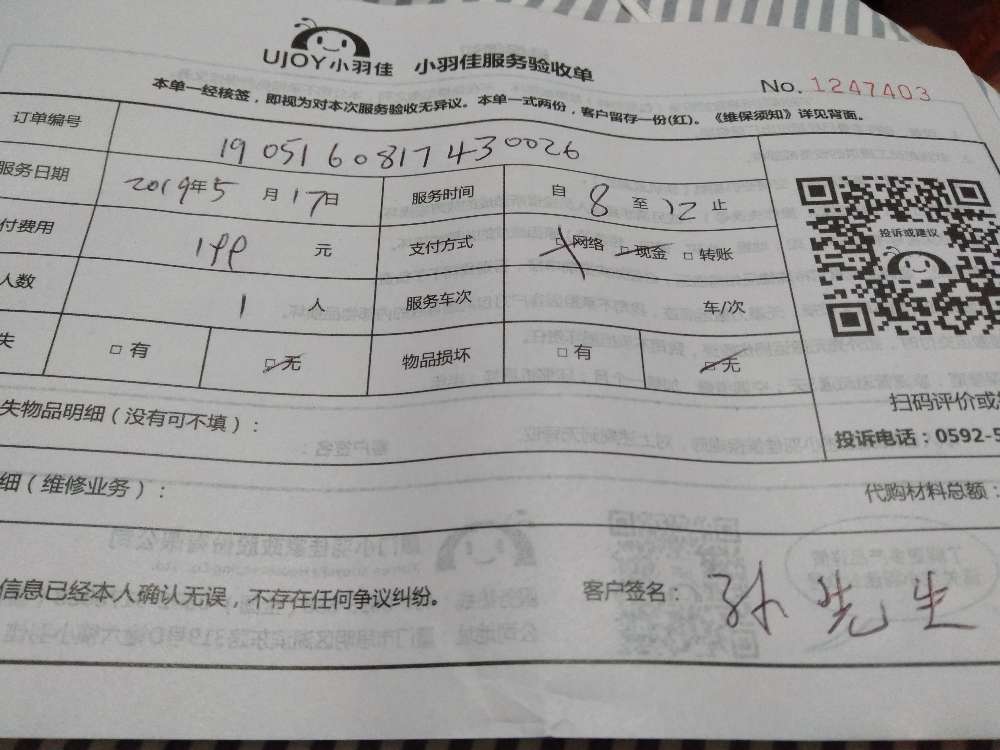 UJOY小羽佳 小羽佳服务验收单
No. 1247403
本单一经核签，即视为对本次服务验收无异议。本单一式两份，客户留存一份(红)。《维保须知》详见背面。
订单编号 190516081743 0026
服务日期 2019年5月17日 服务时间 自8至12止
付费用 199元 支付方式 □网络 □现金 □转账
人数 1人 服务车次 车/次
失 □有 □无 物品损坏 □有 □无
投诉或建议
扫码评价或
投诉电话：0592-5
失物品明细（没有可不填）：
细（维修业务）： 代购材料总额：
信息已经本人确认无误，不存在任何争议纠纷。 客户签名：孙先生